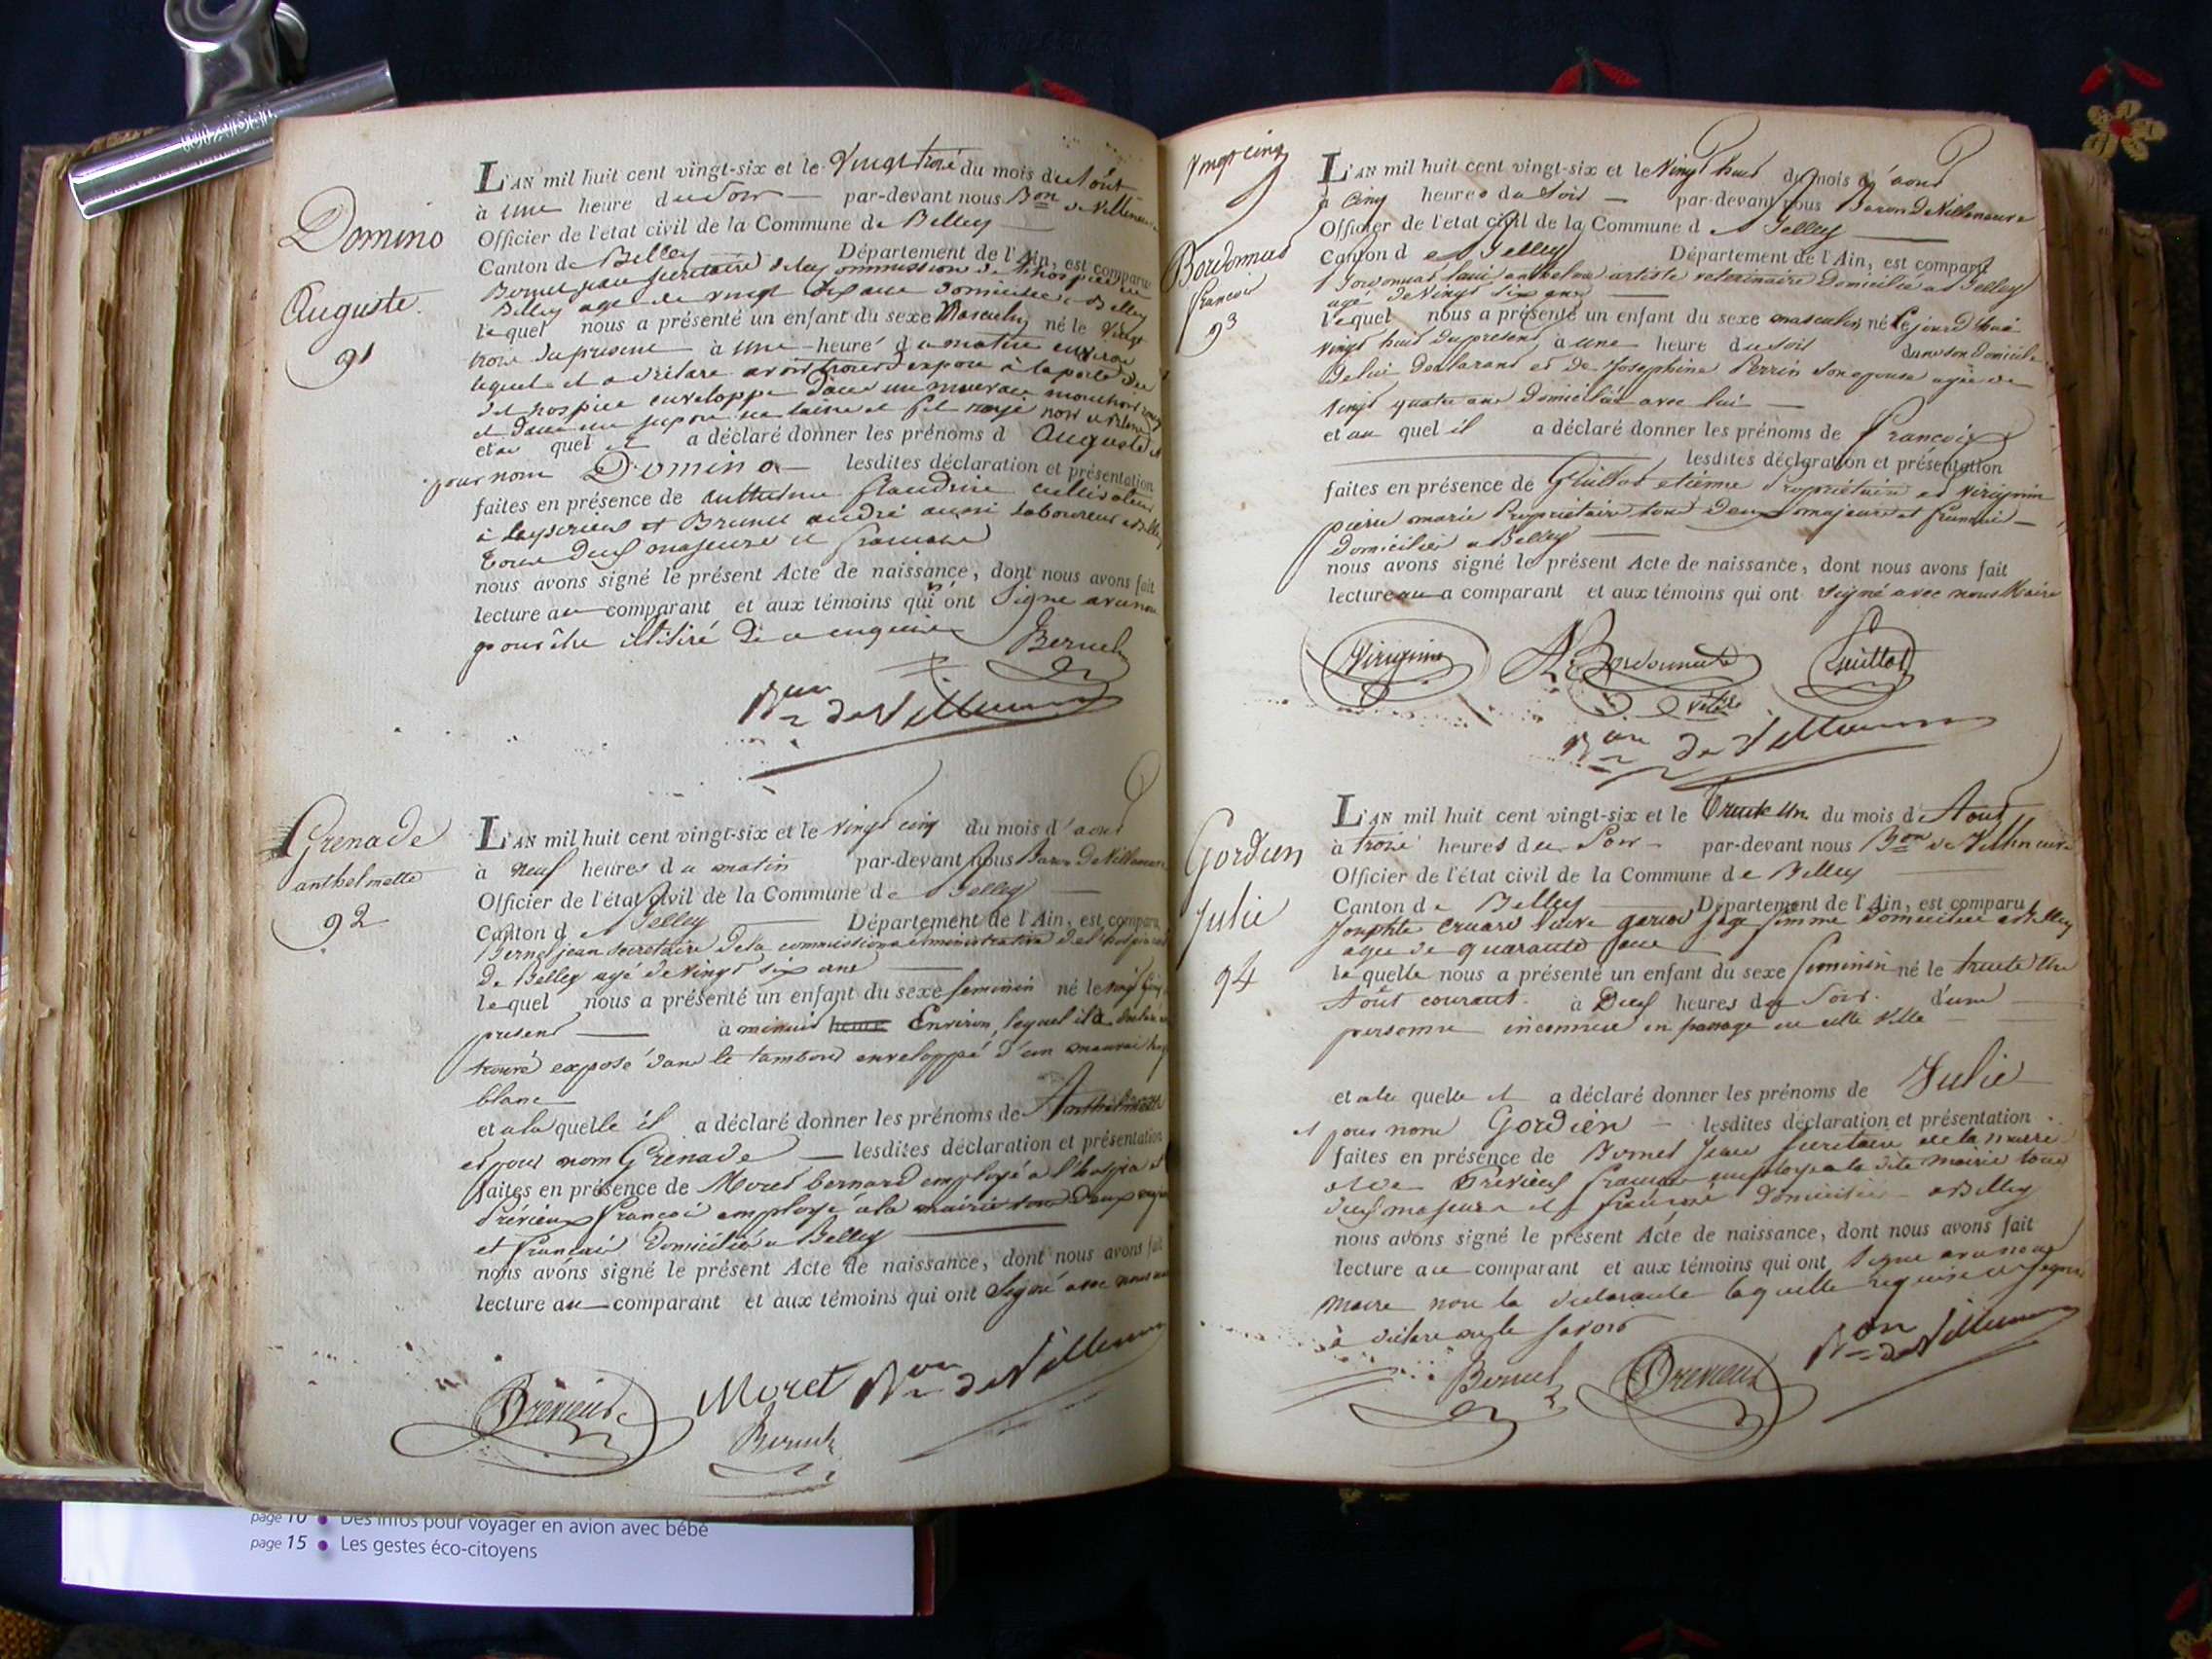 Domino
Auguste.
91
L'AN mil huit cent vingt-six et le Vingt trois du mois de Août
à une heure du Soir par-devant nous Bon de Villeneuve
Officier de l'état civil de la Commune de Belley
Canton de Belley Département de l'Ain, est comparu
Bernel jean secretaire de la Commission de l'hospice de
Belley agé de vingt six ans domicilié à Belley
lequel nous a présenté un enfant du sexe Masculin né le vingt
trois du present à une heure du matin environ
lequel il a déclaré avoir trouvé exposé à la porte du
dit hospice enveloppé dans un mauvais mouchoir rouge
et dans un jupon de laine et fil rayé noir et blanc
et au quel il a déclaré donner les prénoms d Auguste et
pour nom Domino lesdites déclaration et présentation
faites en présence de Claudine cultivateur
à et Brunet andré aussi laboureur à Belley
tous deux majeurs et français
nous avons signé le présent Acte de naissance, dont nous avons fait
lecture au comparant et aux témoins qui ont Signé avec nous
pour être illitiré de ce enquis Bernel
Bon de Villeneuve
Grenade
anthelmette
92
L'AN mil huit cent vingt-six et le vingt cinq du mois d'aout
à neuf heures du matin par-devant nous Baron De Villeneuve
Officier de l'état civil de la Commune de Belley
Canton de Belley Département de l'Ain, est comparu
Bernel jean secretaire de la commission administrative de l'hospice
De Belley agé de vingt six ans
lequel nous a présenté un enfant du sexe feminin né le vingt cinq
present à minuit heure Environ, lequel il a déclaré
trouvé exposé dans le tambour enveloppé d'un mauvais linge
blanc
et a la quelle il a déclaré donner les prénoms de Anthelmette
et pour nom Grenade lesdites déclaration et présentation
faites en présence de Moret bernard employé a l'hospice et
Prévieux françois employé à la mairie tous deux majeurs
et français domicilié a Belley
nous avons signé le présent Acte de naissance, dont nous avons fait
lecture au comparant et aux témoins qui ont Signé avec nous
Previeux Moret Bon de Villeneuve
Bernel
Vingt cinq
Bordonnas
françois
93
L'AN mil huit cent vingt-six et le Vingt huit du mois d'aout
à cinq heures du Soir par-devant nous Baron De Villeneuve
Officier de l'état civil de la Commune de Belley
Canton de Belley Département de l'Ain, est comparu
Bordonnas anthelme artiste veterinaire Domicilié a Belley
agé de Vingt six ans
lequel nous a présenté un enfant du sexe masculin né le jourd'hui
vingt huit du present à une heure du Soir dans son domicile
de lui declarant et de Josephine Perrin son epouse agée de
vingt quatre ans domiciliée avec lui
et au quel il a déclaré donner les prénoms de françois
lesdites déclaration et présentation
faites en présence de Guillot etienne Propriétaire et Virignin
pierre marie Propriétaire tous Deux majeurs et français
domiciliés a Belley
nous avons signé le présent Acte de naissance, dont nous avons fait
lecture au comparant et aux témoins qui ont signé avec nous Maire
Virignin A Bordonnas Guillot
Bon de Villeneuve
Gordien
Julie
94
L'AN mil huit cent vingt-six et le trente un du mois d Aout
à trois heures du Soir par-devant nous Bon de Villeneuve
Officier de l'état civil de la Commune de Belley
Canton de Belley Département de l'Ain, est comparu
Josephte veuve sage femme domiciliée à Belley
agée de quarante ans
laquelle nous a présenté un enfant du sexe feminin né le trente un
Août courant à Deux heures du Soir. d'une
personne inconnue en passage en cette Ville
et a la quelle il a déclaré donner les prénoms de Julie
et pour nom Gordien lesdites déclaration et présentation
faites en présence de Bernel Jean secretaire de la mairie
et de Previeux françois employé a la dite mairie tous
deux majeurs et français domiciliés à Belley
nous avons signé le présent Acte de naissance, dont nous avons fait
lecture au comparant et aux témoins qui ont signé avec nous
maire non la declarante laquelle requise de signer
a déclaré ne le savoir
Bernel Previeux Bon de Villeneuve
page 10 • Des infos pour voyager en avion avec bébé
page 15 • Les gestes éco-citoyens